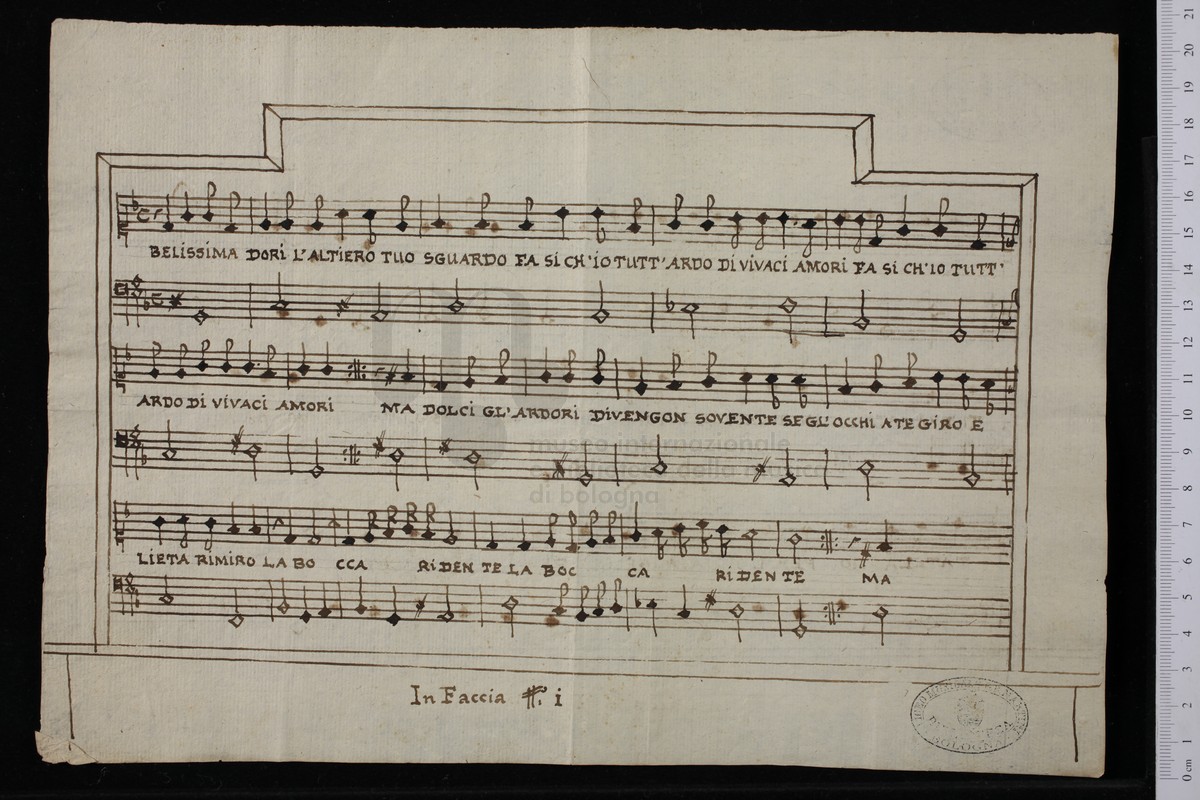 BELISSIMA DORI L'ALTIERO TUO SGUARDO FA SI CH'IO TUTT'ARDO DI VIVACI AMORI FA SI CH'IO TUTT'
ARDO DI VIVACI AMORI MA DOLCI GL'ARDORI DIVENGON SOVENTE SE GL'OCCHI A TE GIRO E
museo internazionale
e biblioteca della musica
di bologna
LIETA RIMIRO LA BO CCA RIDEN TE LA BOC CA RIDEN TE MA
In Faccia i
BOLOGNA